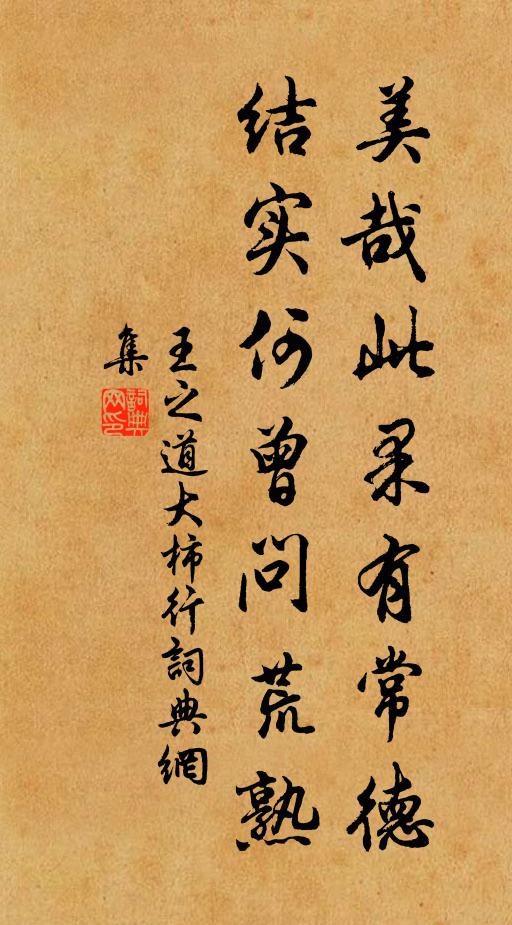 美哉此果有常德
结实何曾问荒熟
王之道大柿行詞典網
集
詞典
网印